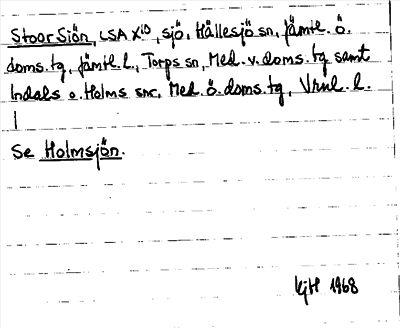 Stoor Siön, LSA X¹⁰, sjö, Hällesjö sn, Jämtl. ö.
doms. tg, Jämtl. l., Torps sn, Med. v. doms. tg samt
Indals o. Holms snr, Med. ö. doms. tg, Vrnl. l.
|
Se Holmsjön.
KjH 1968